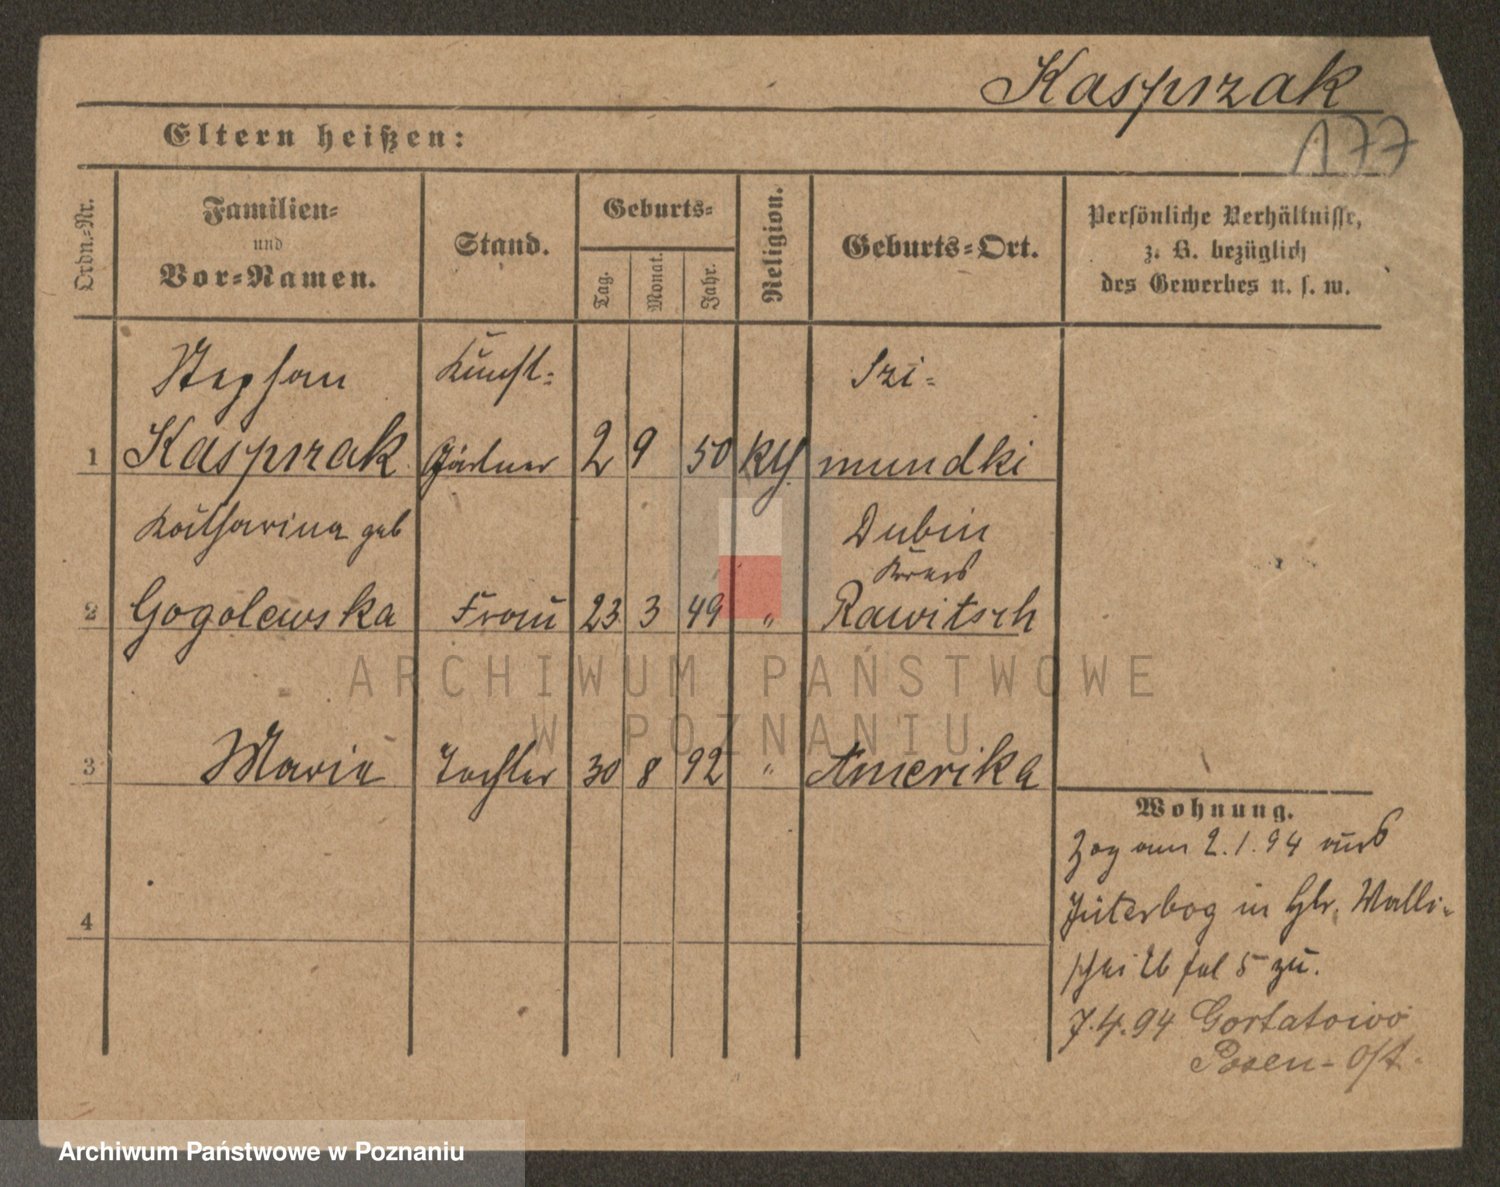 Kasprzak
177
Eltern heißen:
Ordn.-Nr.
Familien-
und
Vor-Namen.
Stand.
Geburts-
Tag.
Monat.
Jahr.
Religion.
Geburts-Ort.
Persönliche Verhältnisse,
z. B. bezüglich
des Gewerbes u. s. w.
Stephan Kunst- Szi-
1 Kasprzak Gärtner 2 9 50 mundki
Katharina geb Dubin
Kreis
2 Gogolewska Frau 23 3 49 " Rawitsch
3 Marie Tochter 30 8 92 " Amerika
4
Wohnung.
Zog am 2.1.94 aus
Jüterbog in Walli-
schei 5 zu.
7.4.94 Gortatowo
Posen-Ost.
ARCHIWUM PAŃSTWOWE
W POZNANIU
Archiwum Państwowe w Poznaniu